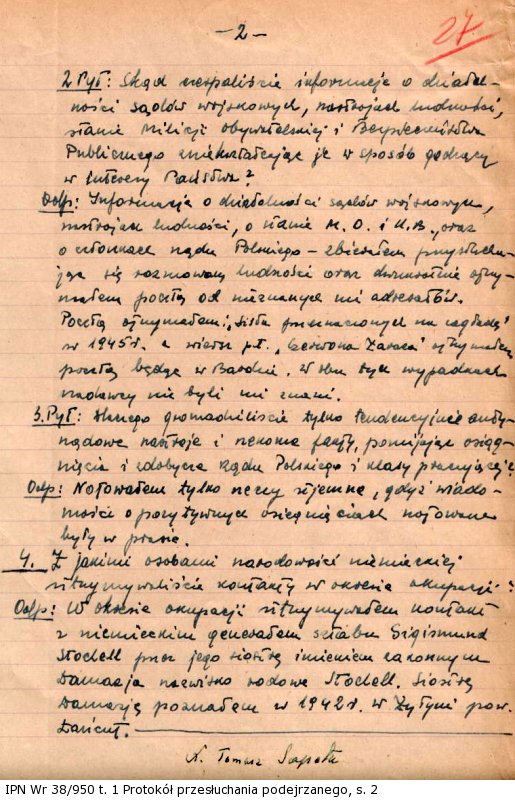 -2-
27.
2 Pyt: Skąd czerpaliście informacje o działal-
ności sądów wojskowych, nastrojach ludności,
stanie Milicji Obywatelskiej i Bezpieczeństwa
Publicznego zniekształcając je w sposób godzący
w interesy Państwa?
Odp: Informacje o działalności sądów wojskowych,
nastrojach ludności, o stanie M.O. i U.B., oraz
o członkach rządu Polskiego – zbierałem przysłuchu-
jąc się rozmowom ludności oraz dwukrotnie otrzy-
małem pocztą od nieznanych mi adresatów.
Pocztą otrzymałem: „Lista przeznaczonych na zagładę"
w 1945 r. a wiersz pt. „Czerwona Zaraza" otrzymałem
pocztą będąc w Bardzie. W obu tych wypadkach
nadawcy nie byli mi znani.
3. Pyt: dlaczego gromadziliście tylko tendencyjnie anty-
rządowe nastroje i rzekome fakty, pomijając osiąg-
nięcia i zdobycze Rządu Polskiego i klasy pracującej?
Odp: Notowałem tylko rzeczy ujemne, gdyż wiado-
mości o pozytywnych osiągnięciach notowane
były w prasie.
4. Z jakimi osobami narodowości niemieckiej
utrzymywaliście kontakty w okresie okupacji?
Odp: W okresie okupacji utrzymywałem kontakt
z niemieckim generałem sztabu Sigismund
Stodell przez jego siostrę imieniem zakonnym
Damazja nazwisko rodowe Stodell. Siostrę
Damazję poznałem w 1942 r. w Żołyni pow.
Łańcut.
X. Tomasz Sapeta
IPN Wr 38/950 t. 1 Protokół przesłuchania podejrzanego, s. 2